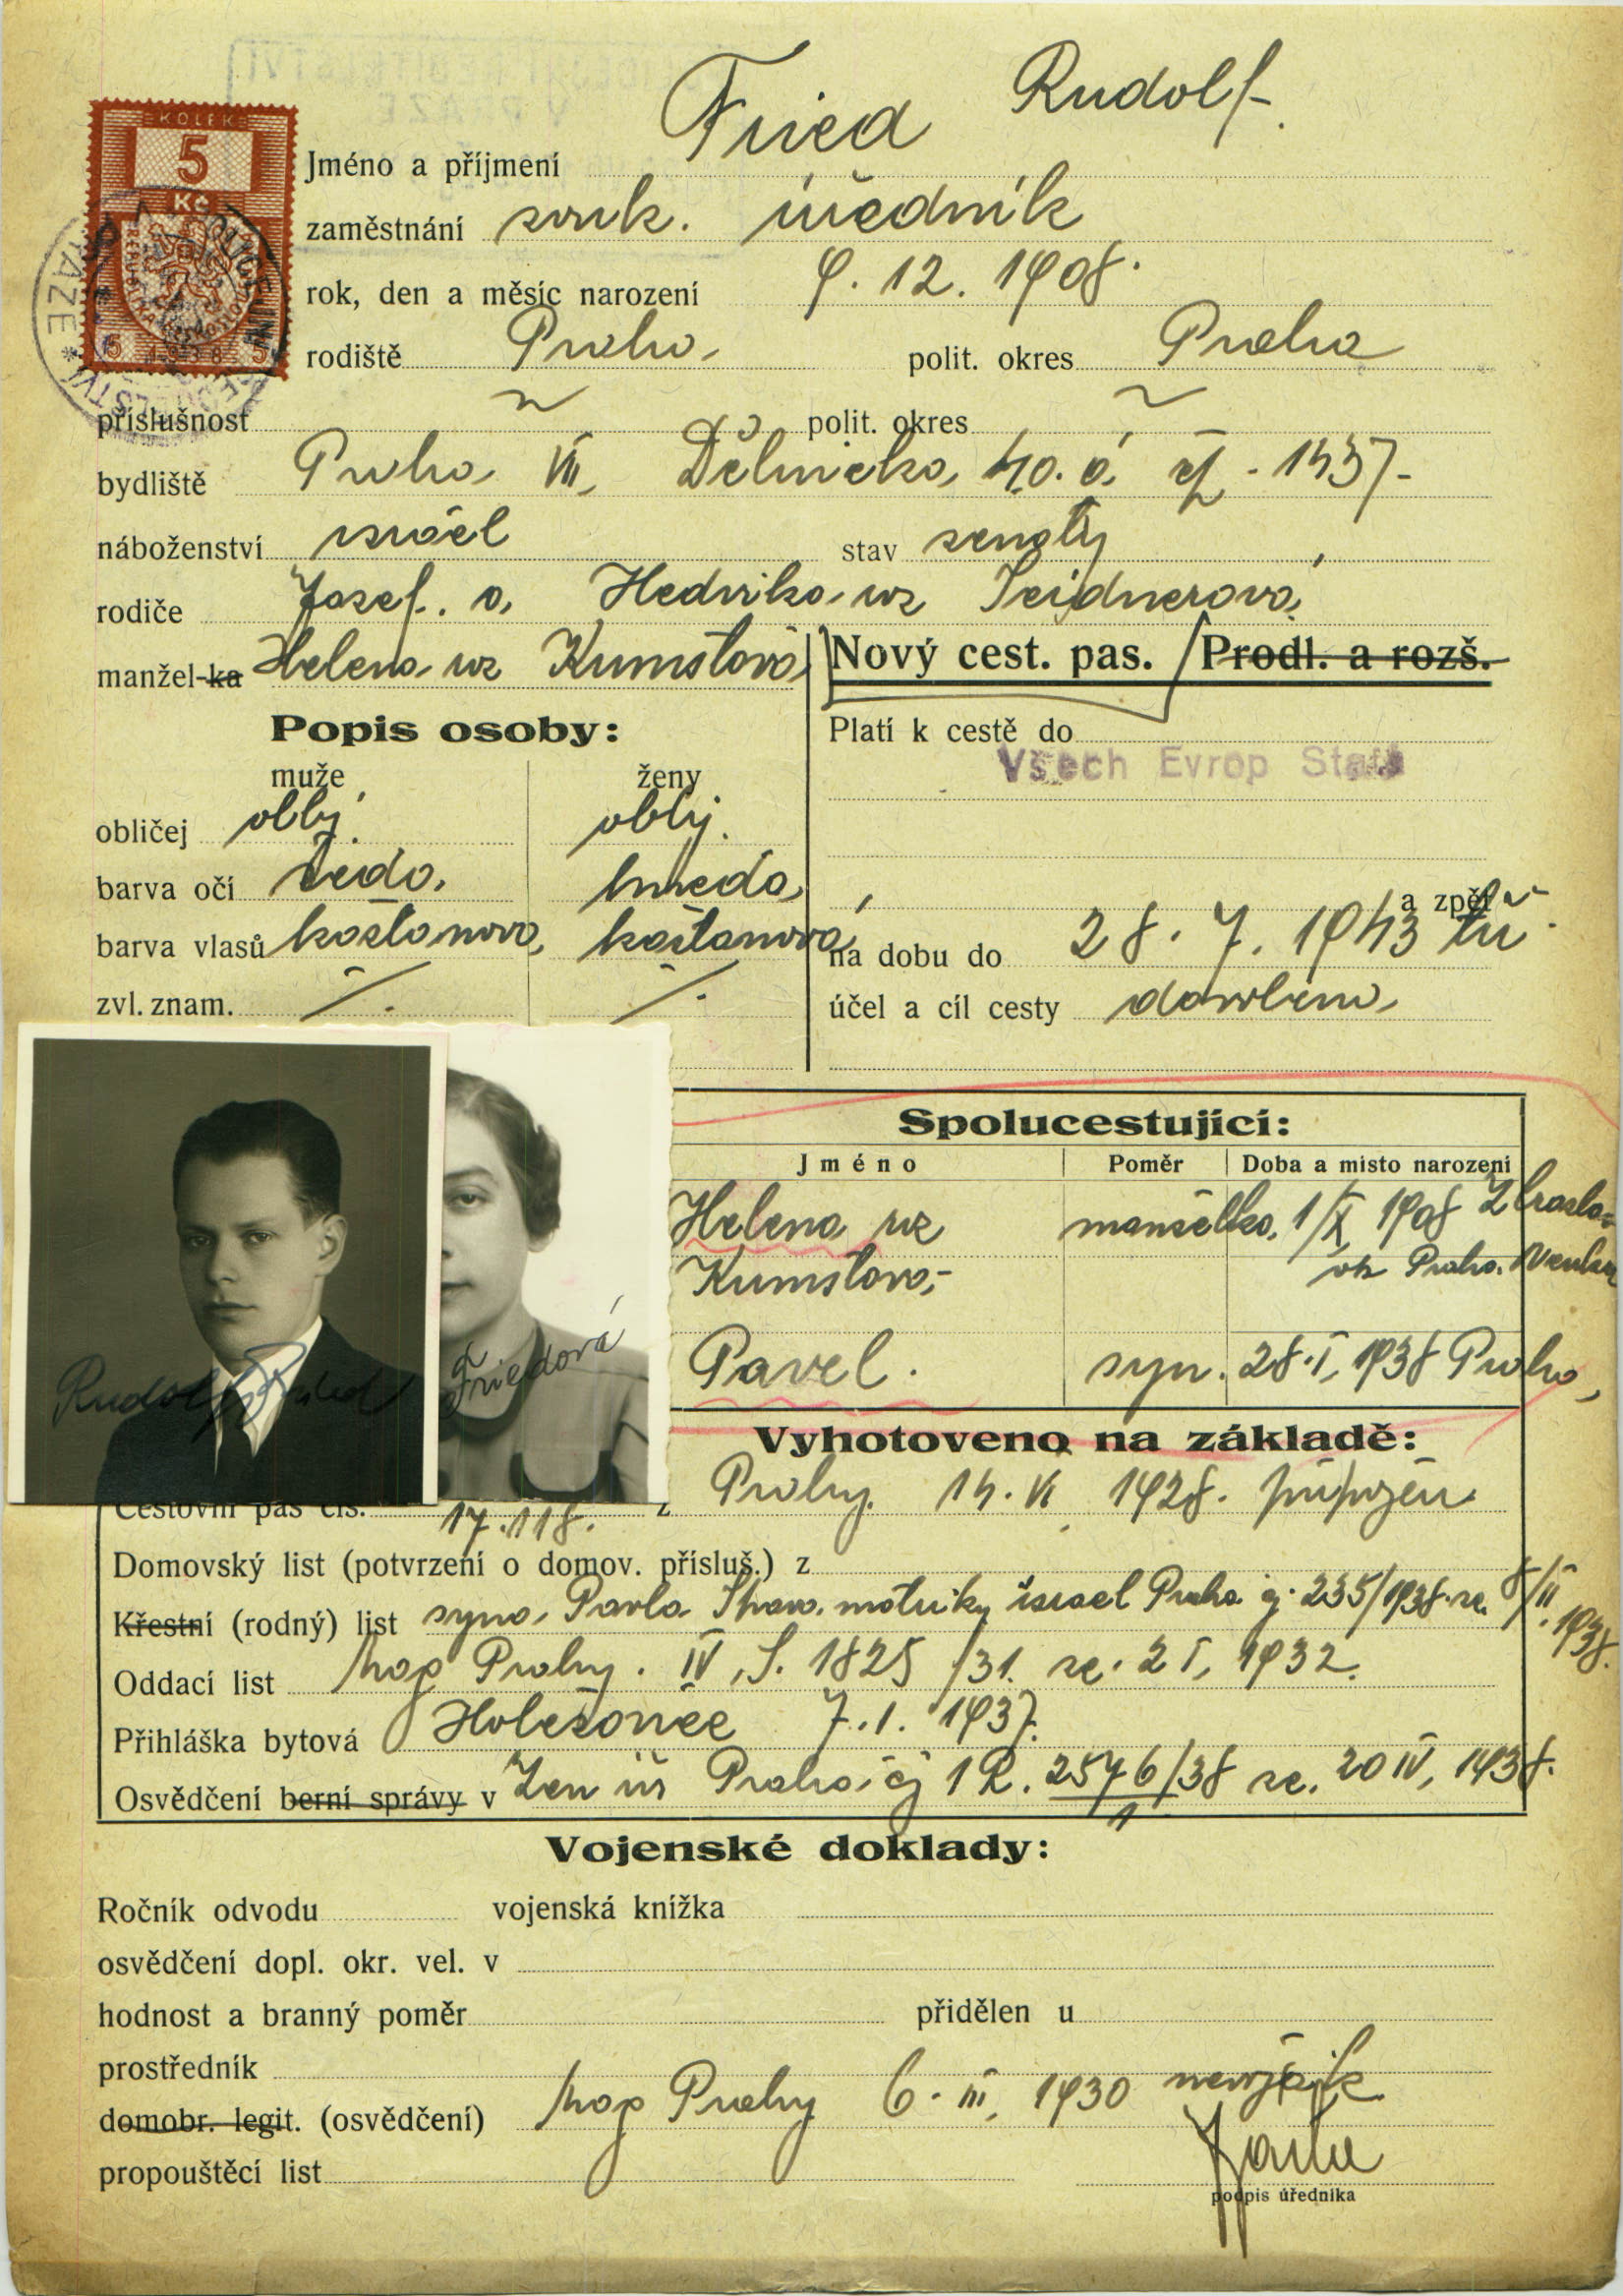 KOLEK
5
Kč
Fried Rudolf.
Jméno a příjmení
zaměstnání souk. úředník
rok, den a měsíc narození 9. 12. 1908.
rodiště Praha, polit. okres Praha
příslušnost " polit. okres "
bydliště Praha VII, Dělnická, 40. čp. 1437-
náboženství israel stav ženatý
rodiče Josef. a, Hedvika, roz Seidnerová,
manžel-ka Helena roz Kumstová,
Nový cest. pas. / Prodl. a rozš.
Popis osoby:
muže ženy
obličej oblý. oblý.
barva očí šedá, hnědá,
barva vlasů kaštanová, kaštanová,
zvl. znam. /. /.
Platí k cestě do
Všech Evrop Států
a zpět
na dobu do 28. 7. 1943
účel a cíl cesty dovolená,
Rudolf Fried
Friedová
Spolucestující:
Jméno Poměr Doba a místo narození
Helena roz manželka, 1/X 1908 Zbraslav
Kumstová,- ok Praha. Venkov
Pavel. syn. 28.I, 1938 Praha,
Vyhotoveno na základě:
Cestovní pas čís. 17.118. z Prahy. 14. VI 1928. připojen
Domovský list (potvrzení o domov. přísluš.) z
Křestní (rodný) list syna, Pavla matriky israel Praha čj. 235/1938. ze. 8/II. 1938.
Oddací list mag Prahy. IV, S. 1825/31. ze. 2 I, 1932.
Přihláška bytová Holešovice 7.1. 1937.
Osvědčení berní správy v Zem úř Praha, čj 1 R. 2576/1/38 ze. 20 IV, 1938.
Vojenské doklady:
Ročník odvodu vojenská knížka
osvědčení dopl. okr. vel. v
hodnost a branný poměr přidělen u
prostředník
domobr. legit. (osvědčení) mag Prahy 6. III, 1930 nevoják
propouštěcí list
podpis úředníka